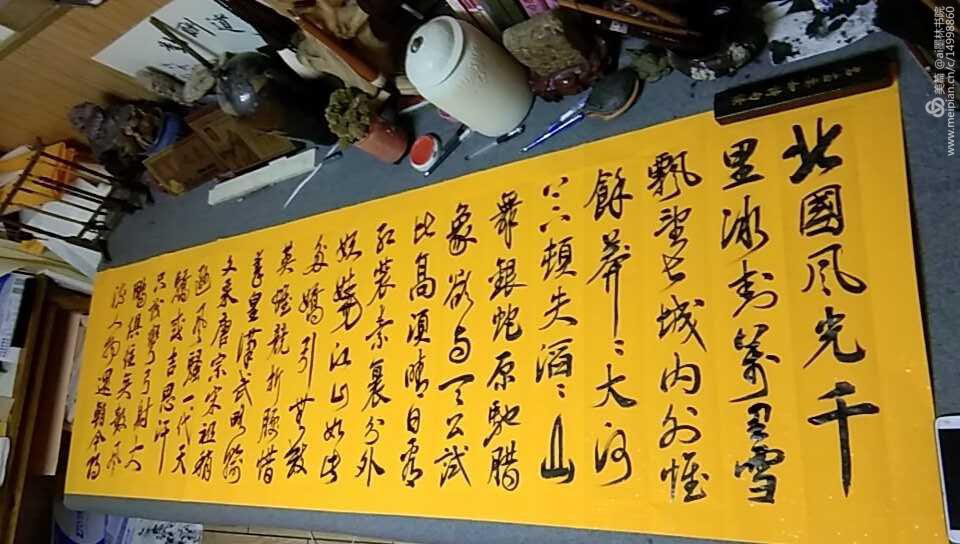 北國風光千
里冰封萬里雪
飄望長城內外惟
餘莽〻大河
上下頓失滔〻山
舞銀蛇原馳臘
象欲與天公試
比高須晴日看
紅裝素裹分外
妖嬈江山如此
多嬌引無數
英雄競折腰惜
秦皇漢武略輸
文采唐宗宋祖稍
遜風騷一代天
驕成吉思汗
只識彎弓射大
雕俱往矣數風
流人物還看今朝
美篇 @ai墨林书院
www.meipian.cn/c/14998860